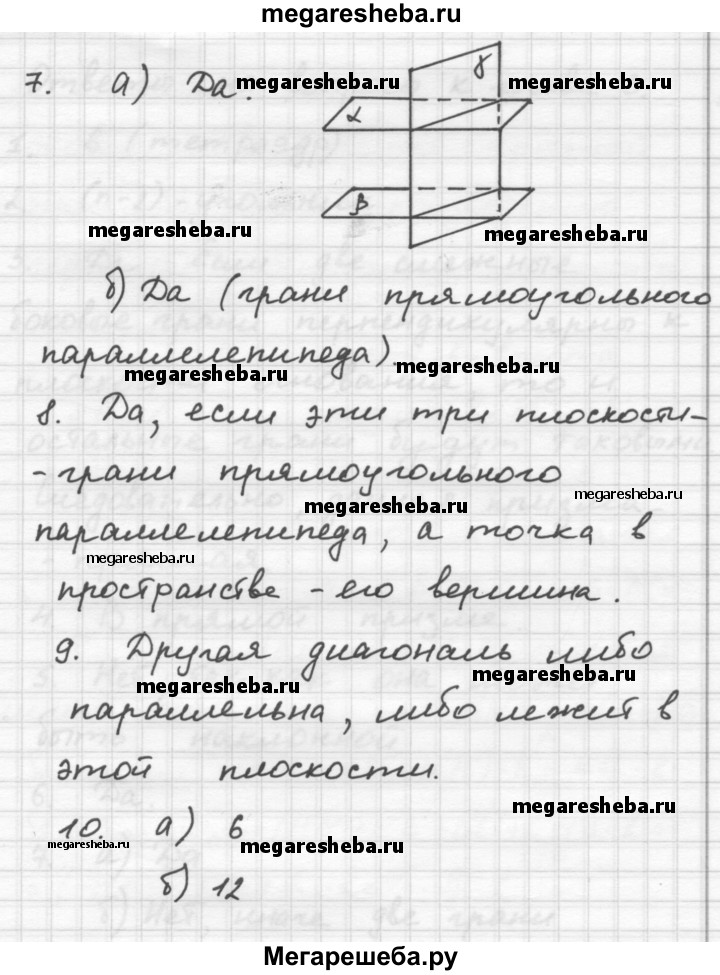 megaresheba.ru
7. а) Да. megaresheba.ru megaresheba.ru
γ
α
β
megaresheba.ru megaresheba.ru
б) Да (грани прямоугольного
параллелепипеда).
megaresheba.ru megaresheba.ru
8. Да, если эти три плоскости-
-грани прямоугольного
megaresheba.ru megaresheba.ru
параллелепипеда, а точка в
megaresheba.ru
пространстве - его вершина.
9. Другая диагональ либо
megaresheba.ru megaresheba.ru
параллельна, либо лежит в
этой плоскости.
megaresheba.ru
10. а) 6
megaresheba.ru megaresheba.ru
б) 12
Мегарешеба.ру